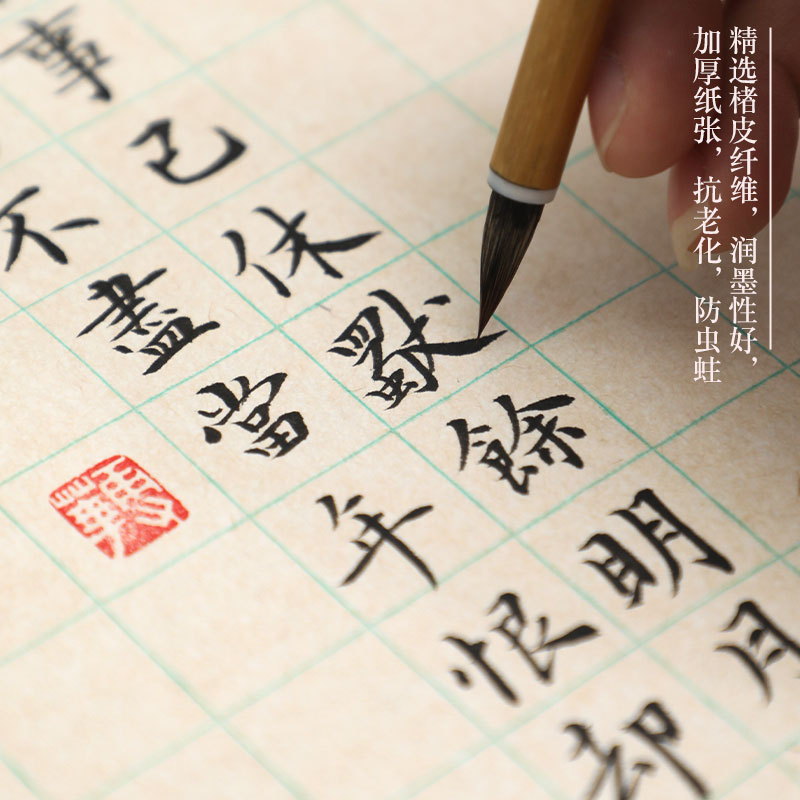 精选楮皮纤维，润墨性好，
加厚纸张，抗老化，防虫蛀
事已休獨餘明月
不盡當年恨却